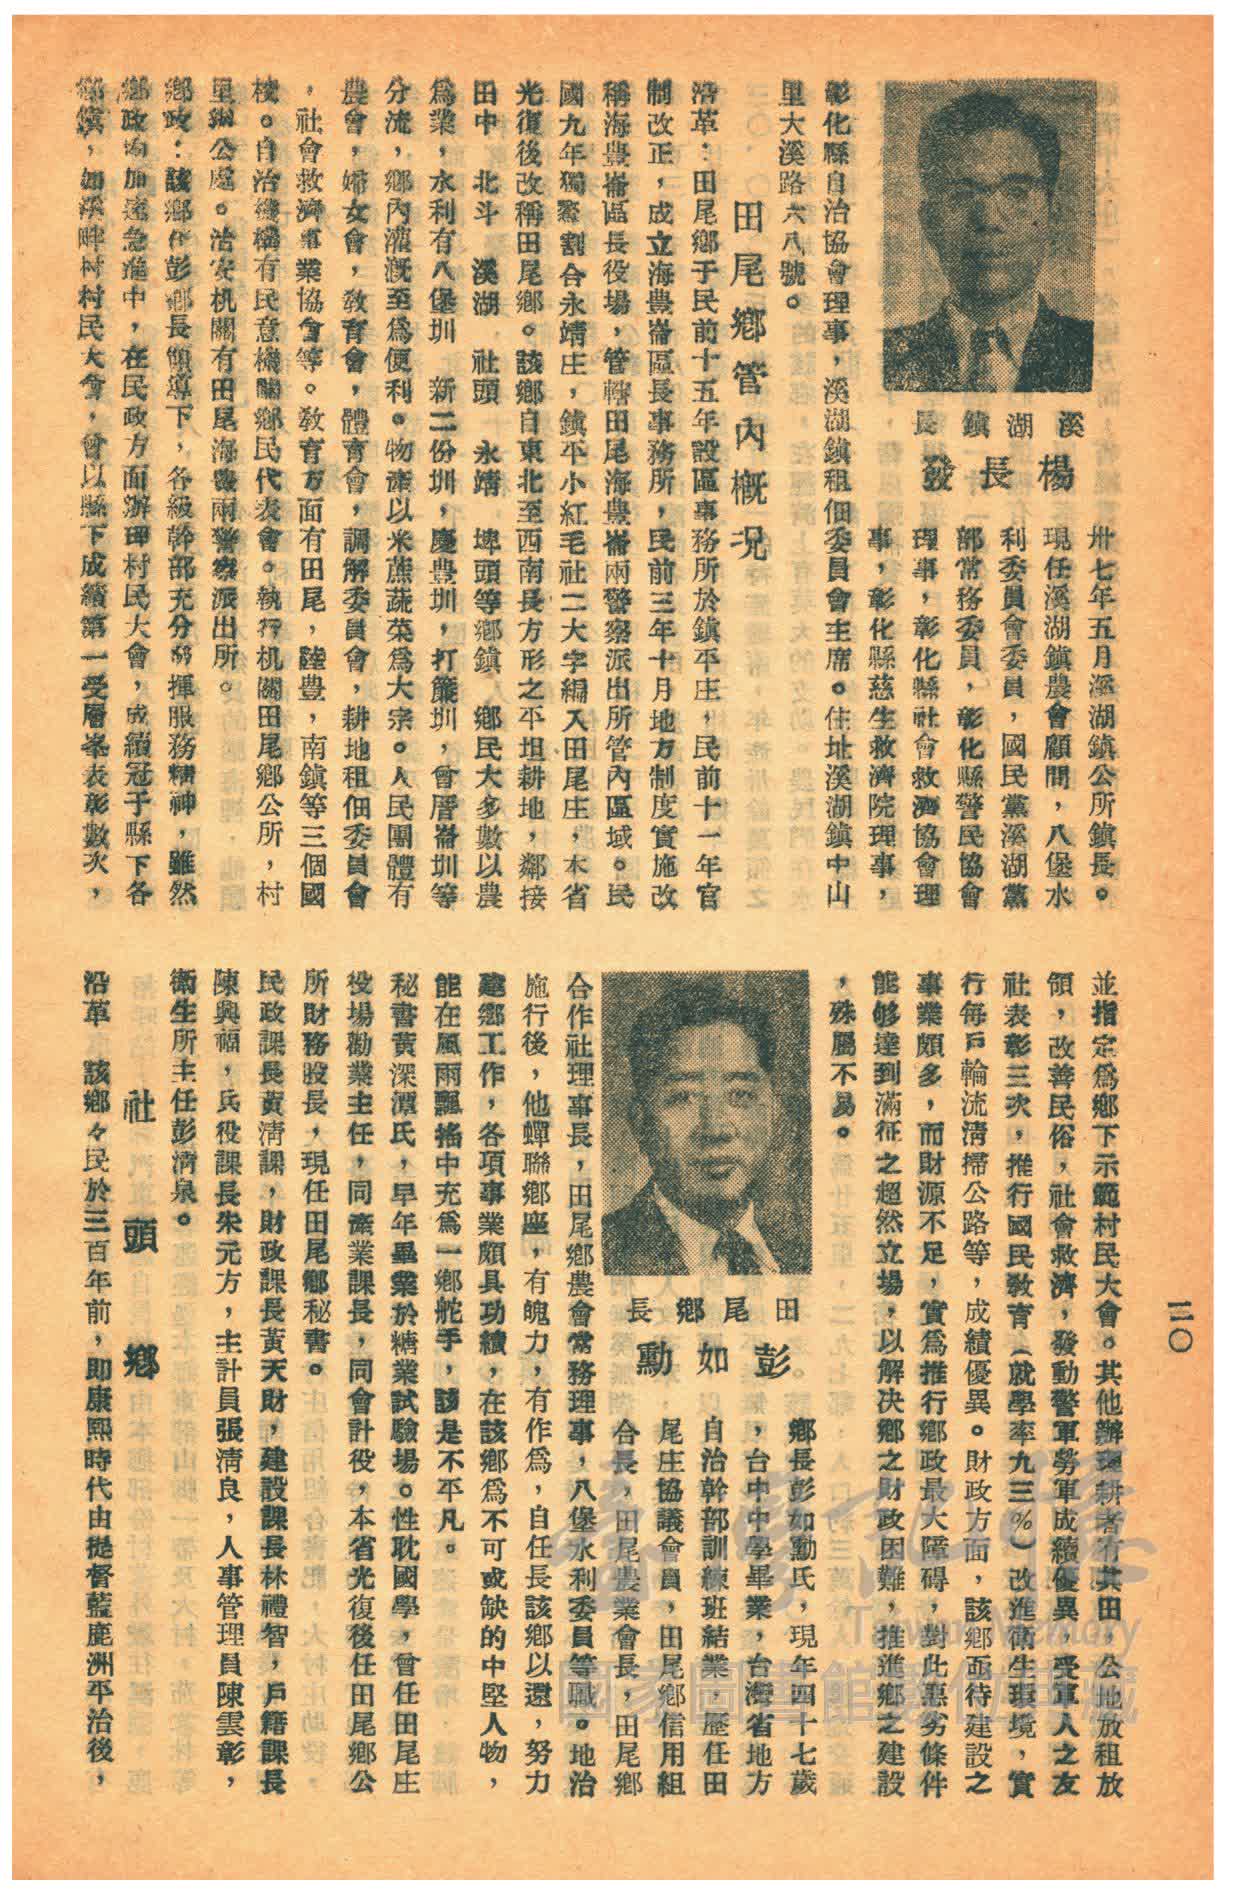 二〇
溪湖鎮長
楊長發
卅七年五月溪湖鎮公所鎮長。
現任溪湖鎮農會顧問,八堡水
利委員會委員,國民黨溪湖黨
部常務委員,彰化縣警民協會
理事,彰化縣社會救濟協會理
事,彰化縣慈生救濟院理事,
彰化縣自治協會理事,溪湖鎮租佃委員會主席。住址溪湖鎮中山
里大溪路六八號。
田尾鄉管內概況
沿革:田尾鄉于民前十五年設區事務所於鎮平庄,民前十一年官
制改正,成立海豊崙區長事務所,民前三年十月地方制度實施改
稱海豊崙區長役場,管轄田尾海豊崙兩警察派出所管內區域。民
國九年獨鰲割合永靖庄,鎮平小紅毛社二大字編入田尾庄,本省
光復後改稱田尾鄉。該鄉自東北至西南長方形之平坦耕地,鄰接
田中 北斗 溪湖 社頭 永靖 埤頭等鄉鎮 鄉民大多數以農
為業,水利有八堡圳 新二份圳,慶豊圳,打簾圳,曾厝崙圳等
分流,鄉內灌溉至為便利。物產以米蔗蔬菜為大宗。人民團體有
農會,婦女會,教育會,體育會,調解委員會,耕地租佃委員會
,社會救濟事業協會等。教育方面有田尾,陸豊,南鎮等三個國
校。自治機構有民意機關鄉民代表會。執行机關田尾鄉公所,村
里辦公處。治安机關有田尾海豊兩警察派出所。
鄉政:該鄉在彭鄉長領導下,各級幹部充分發揮服務精神,雖然
鄉政均加速急進中,在民政方面辦理村民大會,成績冠于縣下各
鄉鎮,如溪畔村村民大會,曾以縣下成績第一受層峯表彰數次,
並指定為鄉下示範村民大會。其他辦理耕者有其田,公地放租放
領,改善民俗,社會救濟,發動警軍勞軍成績優異,受軍人之友
社表彰三次,推行國民教育(就學率九三%)改進衛生環境,實
行每戶輪流清掃公路等,成績優異。財政方面,該鄉亟待建設之
事業頗多,而財源不足,實為推行鄉政最大障碍,對此惡劣條件
能够達到滿征之超然立場,以解決鄉之財政困難,推進鄉之建設
,殊屬不易。
田尾鄉長
彭如勳
鄉長彭如勳氏,現年四十七歲
,台中中學畢業,台灣省地方
自治幹部訓練班結業,歷任田
尾庄協議會員,田尾鄉信用組
合長,田尾農業會長,田尾鄉
合作社理事長,田尾鄉農會常務理事,八堡水利委員等職。地治
施行後,他蟬聯鄉座,有魄力,有作為,自任長該鄉以還,努力
建鄉工作,各項事業頗具功績,在該鄉為不可或缺的中堅人物,
能在風雨飄搖中充為一鄉舵手,該是不平凡。
秘書黃深潭氏,早年畢業於糖業試驗場。性耽國學,曾任田尾庄
役場勸業主任,同產業課長,同會計役,本省光復後任田尾鄉公
所財務股長,現任田尾鄉秘書。
民政課長黃清課,財政課長黃天財,建設課長林禮智,戶籍課長
陳興福,兵役課長朱元方,主計員張清良,人事管理員陳雲彰,
衛生所主任彭清泉。
社頭鄉
沿革 該鄉々民於三百年前,即康熙時代由提督藍鹿洲平治後,
臺灣記憶
Taiwan Memory
國家圖書館數位典藏